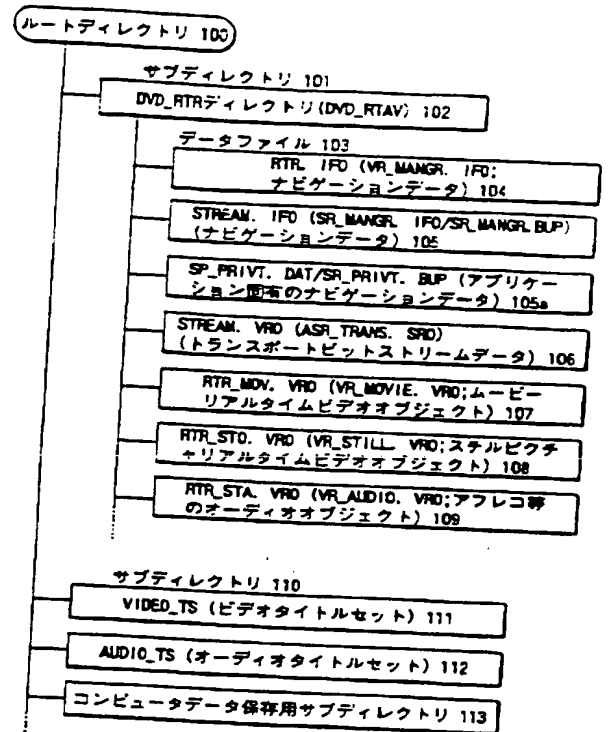 ルートディレクトリ 100
サブディレクトリ 101
DVD_RTRディレクトリ(DVD_RTAV) 102
データファイル 103
RTR. IFO (VR_MANGR. IFO;
ナビゲーションデータ) 104
STREAM. IFO (SR_MANGR. IFO/SR_MANGR.BUP)
(ナビゲーションデータ) 105
SP_PRIVT. DAT/SR_PRIVT. BUP (アプリケー
ション固有のナビゲーションデータ) 105a
STREAM. VRO (ASR_TRANS. SRO)
(トランスポートビットストリームデータ) 106
RTR_MOV. VRO (VR_MOVIE. VRO;ムービー
リアルタイムビデオオブジェクト) 107
RTR_STO. VRO (VR_STILL. VRO;ステルピクチ
ャリアルタイムビデオオブジェクト) 108
RTR_STA. VRO (VR_AUDIO. VRO;アフレコ等
のオーディオオブジェクト) 109
サブディレクトリ 110
VIDEO_TS (ビデオタイトルセット) 111
AUDIO_TS (オーディオタイトルセット) 112
コンピュータデータ保存用サブディレクトリ 113